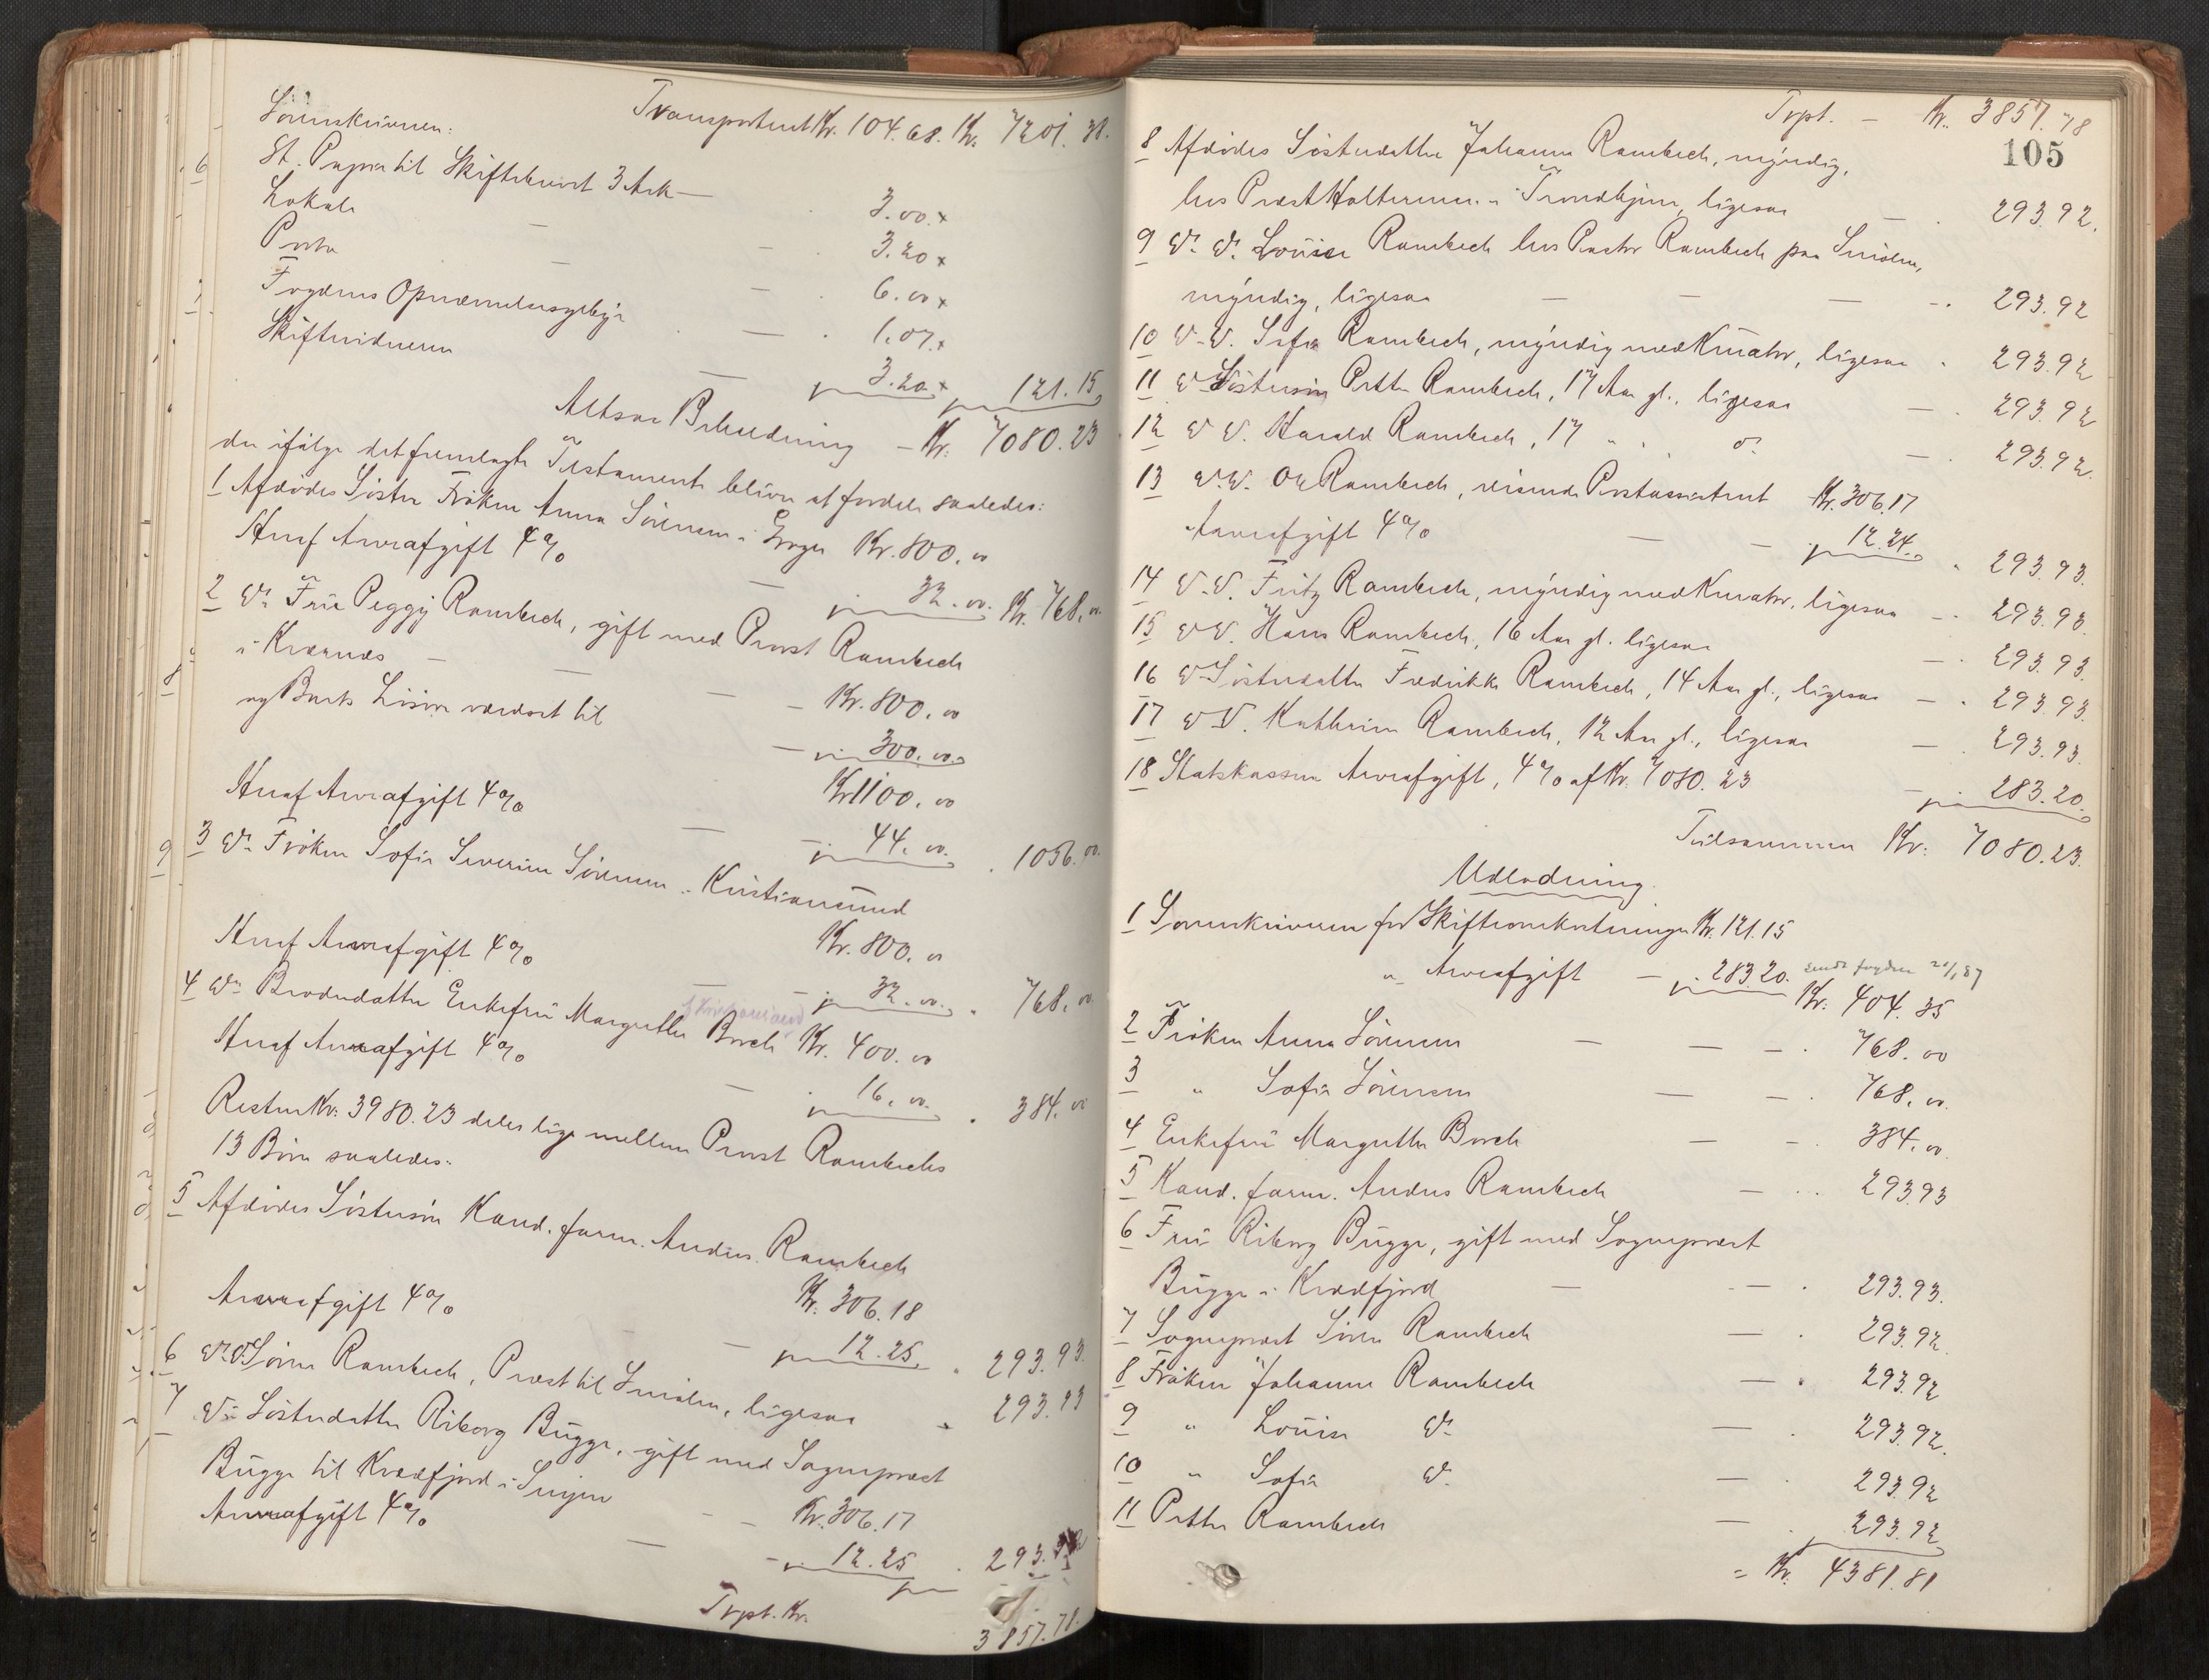 Transporteret Kr. 104.68. Kr. 7201.38.
Sörenskriveren:
St. Papir til Skiftebrevet 3 Ark — 3.00 x
Lokale — 3.20 x
Porto — 6.00 x
Fogdens Opnævnelsesgebyr — 1.07 x
Skiftevidnerne — 3.20 x 121.15
Altsaa Beholdning — Kr. 7080.23
der ifölge det fremlagte Testament bliver at fordele saaledes:
1 Afdödes Söster Fröken Anna Sörensen i Kr. 800.00
Heraf Arveafgift 4% — 32.00. Kr. 768.00
2 Do. Frue Peggy Rambech, gift med Provst Rambech
i Kvernes — Kr. 800.00
og Livöre værdsat til — 300.00
Kr. 1100.00
Heraf Arveafgift 4% — 44.00. 1056.00
3 Do. Fröken Sofie Severine Sörensen i Kristiansund
Kr. 800.00
Heraf Arveafgift 4% — 32.00. 768.00
4 Do. Broderdatter Enkefru Margrethe Borch Kr. 400.00
Kristiansund
Heraf Arveafgift 4% — 16.00. 384.00
Resten Kr. 3980.23 deles lige mellem Provst Rambechs
13 Börn saaledes:
5 Afdödes Söstersön Kand. farm. Andreas Rambech
Kr. 306.18
Arveafgift 4% — 12.25. 293.93
6 Do. Do. Sören Rambech, Præst til Smölen, ligesaa 293.93
7 Do. Sösterdatter Riborg Bugge, gift med Sognepræst
Bugge til Kvædfjord i Senjen Kr. 306.17
Arveafgift 4% — 12.25 293.92
Trpt. Kr. 3857.78.
Trpt. — Kr. 3857.78
105
8 Afdödes Sösterdatter Johanne Rambech, myndig,
hos Præst Halterman i Trondhjem, ligesaa — 293.92.
9 Do. Do. Louise Rambech hos Pastor Rambech paa Smölen,
myndig, ligesaa — — — 293.92
10 D. D. Sofie Rambech, myndig med Kurator, ligesaa 293.92
11 D Söstersön Petter Rambech, 17 Aar gl., ligesaa — 293.92
12 D D. Harald Rambech, 17 " " do. — 293.92.
13 D. D. Ole Rambech, reisende Postassistent Kr. 306.17
Arveafgift 4% — — 12.24. 293.93.
14 D. D. Fritz Rambech, myndig med Kurator, ligesaa — 293.93.
15 D D. Hans Rambech, 16 Aar gl. ligesaa — 293.93.
16 D Sösterdatter Fredrikke Rambech, 14 Aar gl., ligesaa — 293.93.
17 D D. Kathrine Rambech, 12 Aar gl., ligesaa — 293.93.
18 Statskassen Arveafgift, 4% af Kr. 7080.23 — 283.20.
Tilsammen Kr. 7080.23.
Udlodning.
1 Sorenskriveren for Skifteomkostninger Kr. 121.15
" Arveafgift — 283.20. sendt fogden 87
Kr. 404.35
2 Fröken Anna Sörensen — — — 768.00
3 " Sofie Sörensen — — 768.00.
4 Enkefru Margrethe Borch — — 384.00.
5 Kand. farm. Andreas Rambech — 293.93
6 Fru Riborg Bugge, gift med Sognepræst
Bugge i Kvædfjord — — 293.93.
7 Sognepræst Sören Rambech — 293.92.
8 Fröken Johanne Rambech — 293.92
9 " Louise Do. — 293.92.
10 " Sofie D. — 293.92
11 Petter Rambech — 293.92
= Kr. 4381.81